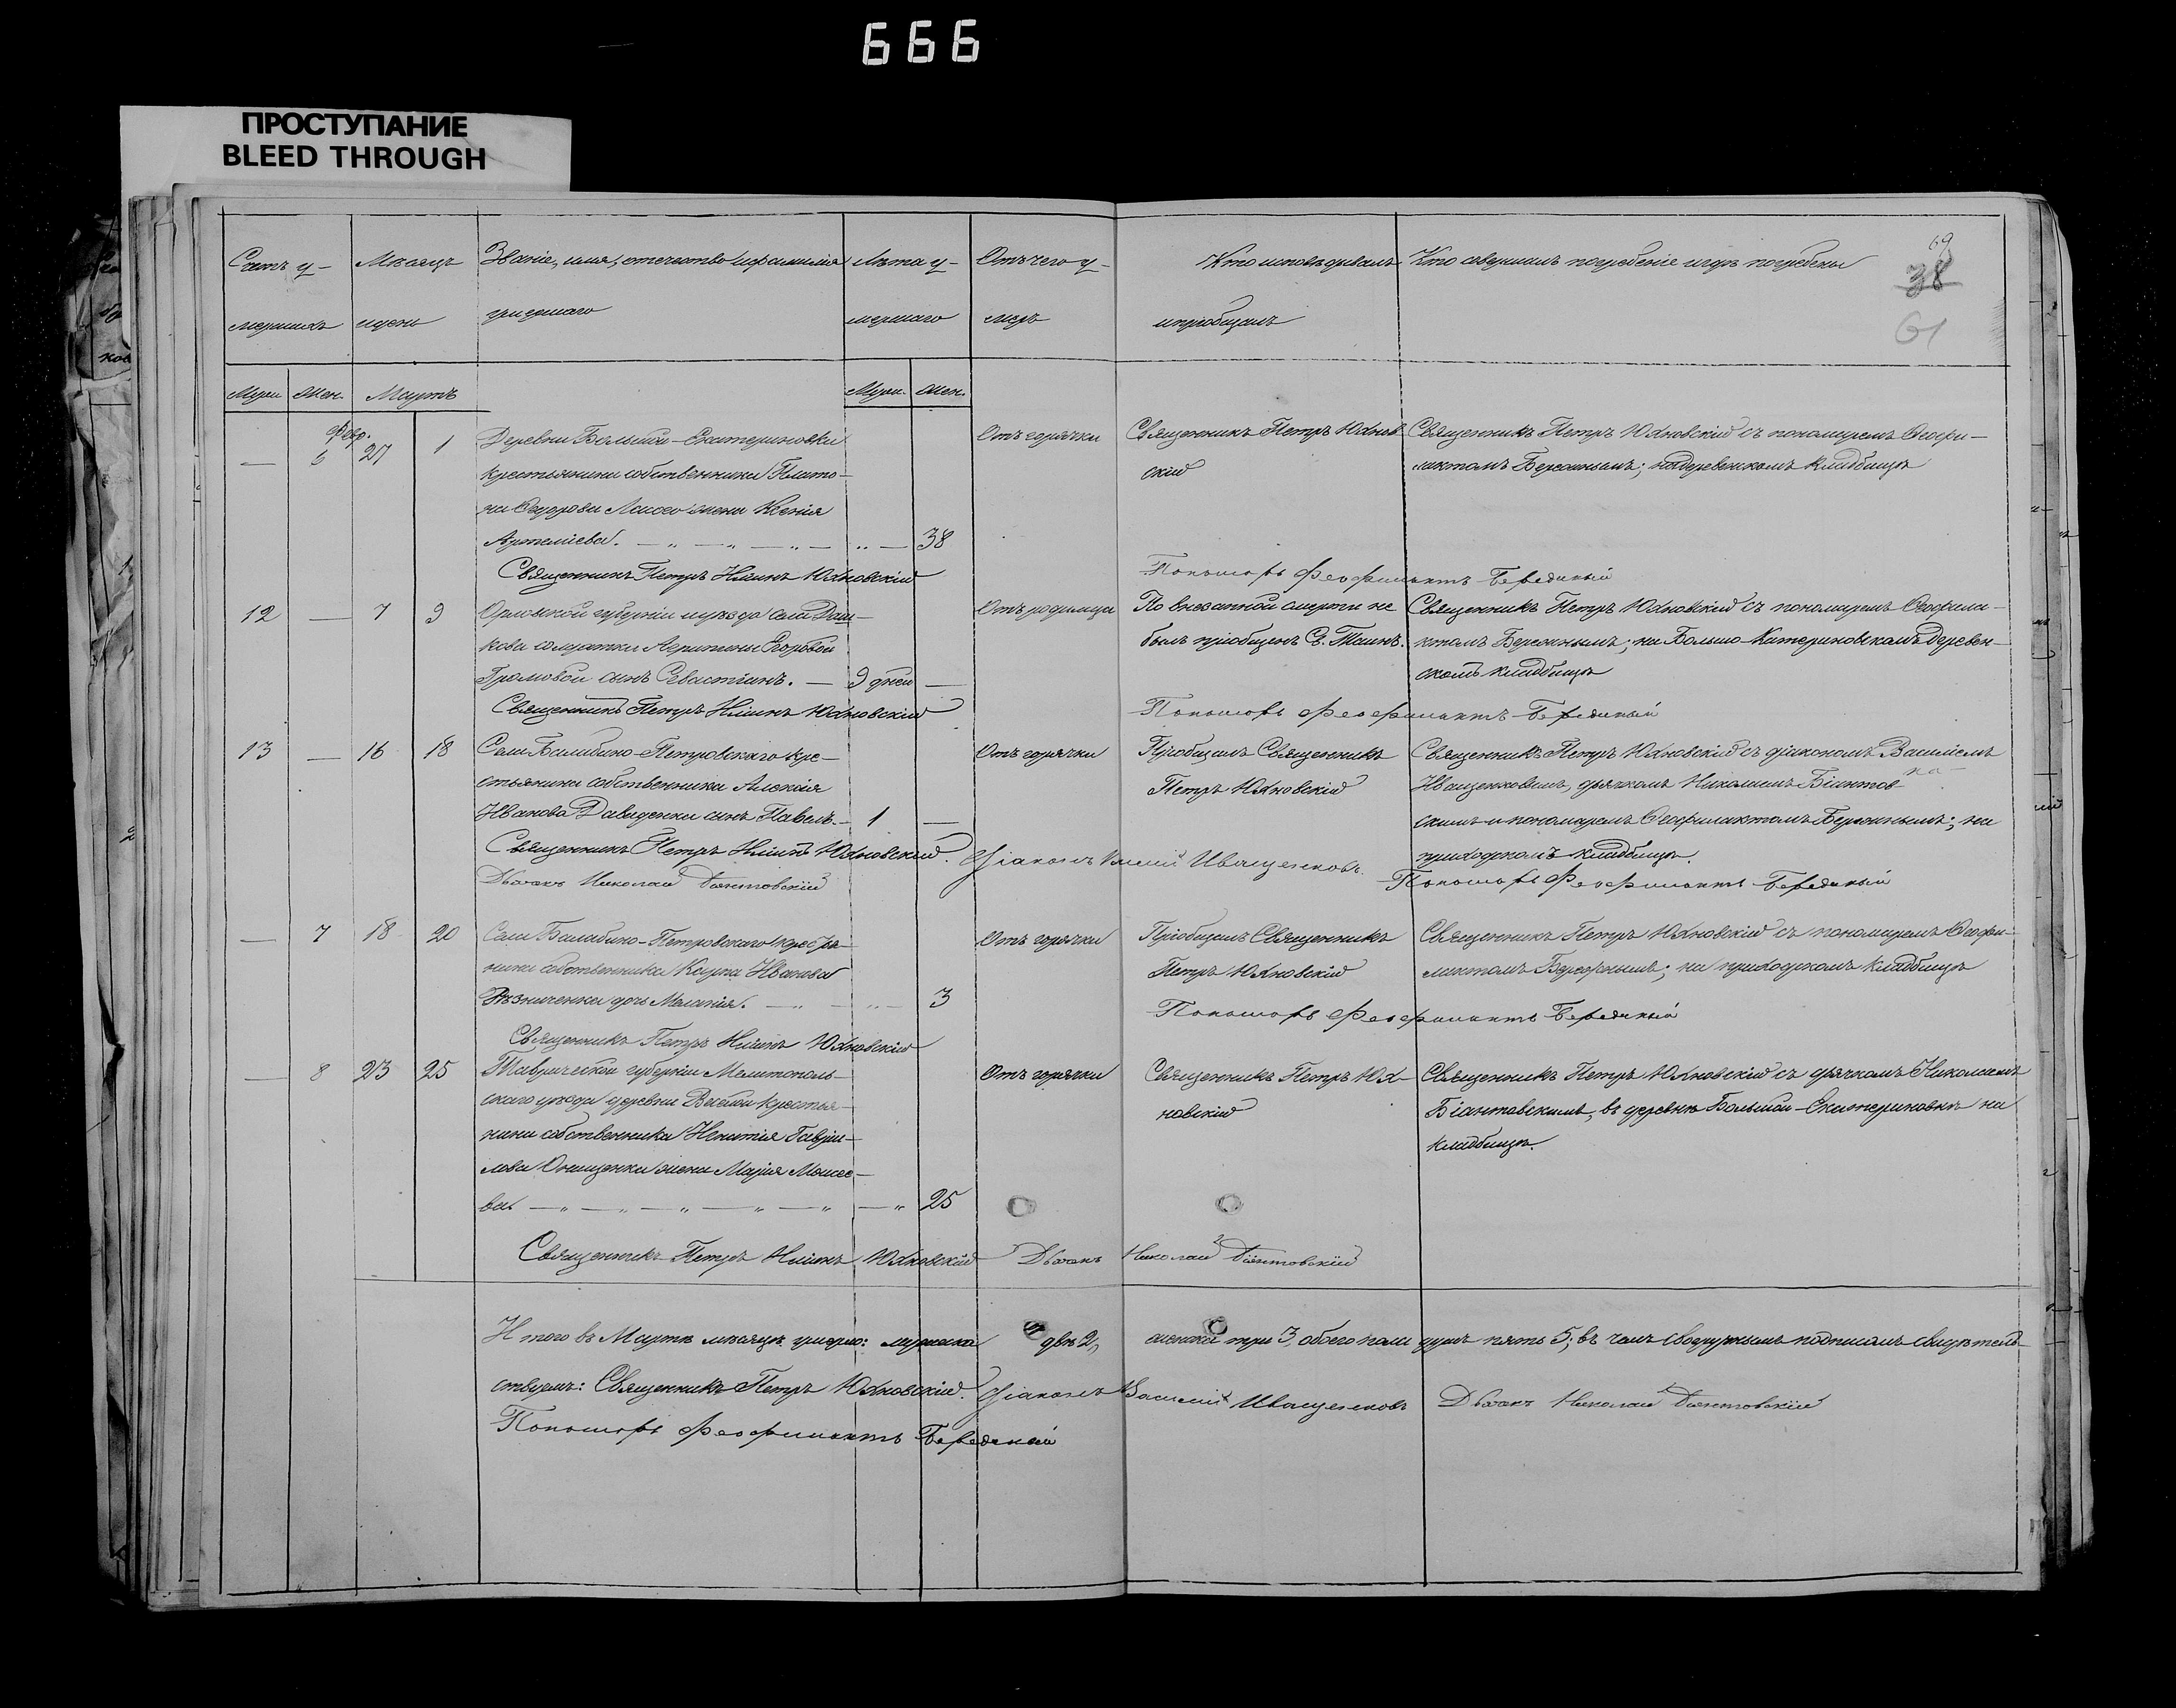 666
ПРОСТУПАНИЕ
BLEED THROUGH
69
38
61
Счетъ у-
мершихъ
Мѣсяцъ
и день
Званіе, имя, отчество и фамилія
умершаго
Лѣта у-
мершаго
Отъ чего у-
меръ
Кто исповѣдывалъ
и пріобщалъ
Кто совершалъ погребеніе и гдѣ погребены
Муж. Жен. Мартъ Муж. Жен.
Февр.
— 6 27 1
Деревни Большой-Екатериновки
крестьянина собственника Плато-
на Ѳедорова жена Ксенія
38
Отъ горячки
Священникъ Петръ Юхнов-
скій
Священникъ Петръ Юхновскій съ пономаремъ Ѳеофи-
лактомъ Бережнымъ; на деревенскомъ кладбищѣ
Священникъ Петръ Юхновскій
Пономарь Феофилактъ Бережный
12 — 7 9
Орловской губерніи и уѣзда села
солдатки Егоровой
Громовой сынъ Севастіанъ. — 9 дней —
Отъ родимца
По внезапной смерти не
былъ пріобщенъ Св. Таинъ.
Священникъ Петръ Юхновскій съ пономаремъ Ѳеофила-
ктомъ Бережнымъ; на Больше-Катериновскомъ деревен-
скомъ кладбищѣ
Священникъ Петръ Юхновскій
Пономарь Феофилактъ Бережный
13 — 16 18
Села Балабино-Петровскаго кре-
стьянина собственника Алексія
Иванова Давиденка сынъ Павелъ. — 1 —
Отъ горячки
Пріобщалъ Священникъ
Петръ Юхновскій
Священникъ Петръ Юхновскій съ діакономъ Василіемъ
Иващенковымъ, дьячкомъ Николаемъ Біантов-
скимъ и пономаремъ Ѳеофилактомъ Бережнымъ; на
приходскомъ кладбищѣ.
Священникъ Петръ Юхновскій. Діаконъ Василій Иващенковъ.
Дьячокъ Николай Біантовскій
Пономарь Феофилактъ Бережный
— 7 18 20
Села Балабино-Петровскаго крестья-
нина собственника Карпа Иванова
Рѣзниченка дочь Меланія. 3
Отъ горячки
Пріобщалъ Священникъ
Петръ Юхновскій
Священникъ Петръ Юхновскій съ пономаремъ Ѳеофи-
лактомъ Бережнымъ; на приходскомъ кладбищѣ
Пономарь Феофилактъ Бережный
Священникъ Петръ Юхновскій
— 8 23 25
Таврической губерніи Мелитополь-
скаго уѣзда деревни крестья-
нина собственника Игнатія Гаври-
лова Онищенка жена Марія Моисее-
ва. 25
Отъ горячки
Священникъ Петръ Юх-
новскій
Священникъ Петръ Юхновскій съ дьячкомъ Николаемъ
Біантовскимъ, въ деревнѣ Большой-Екатериновкѣ на
кладбищѣ.
Священникъ Петръ Юхновскій Дьячокъ Николай Біантовскій
Итого въ Мартѣ мѣсяцѣ умерло: мужеска два 2, женска три 3, обоего пола душъ пять 5; въ чемъ своеручнымъ подписомъ свидѣтель-
ствуемъ: Священникъ Петръ Юхновскій. Діаконъ Василій Иващенковъ Дьячокъ Николай Біантовскій
Пономарь Феофилактъ Бережный